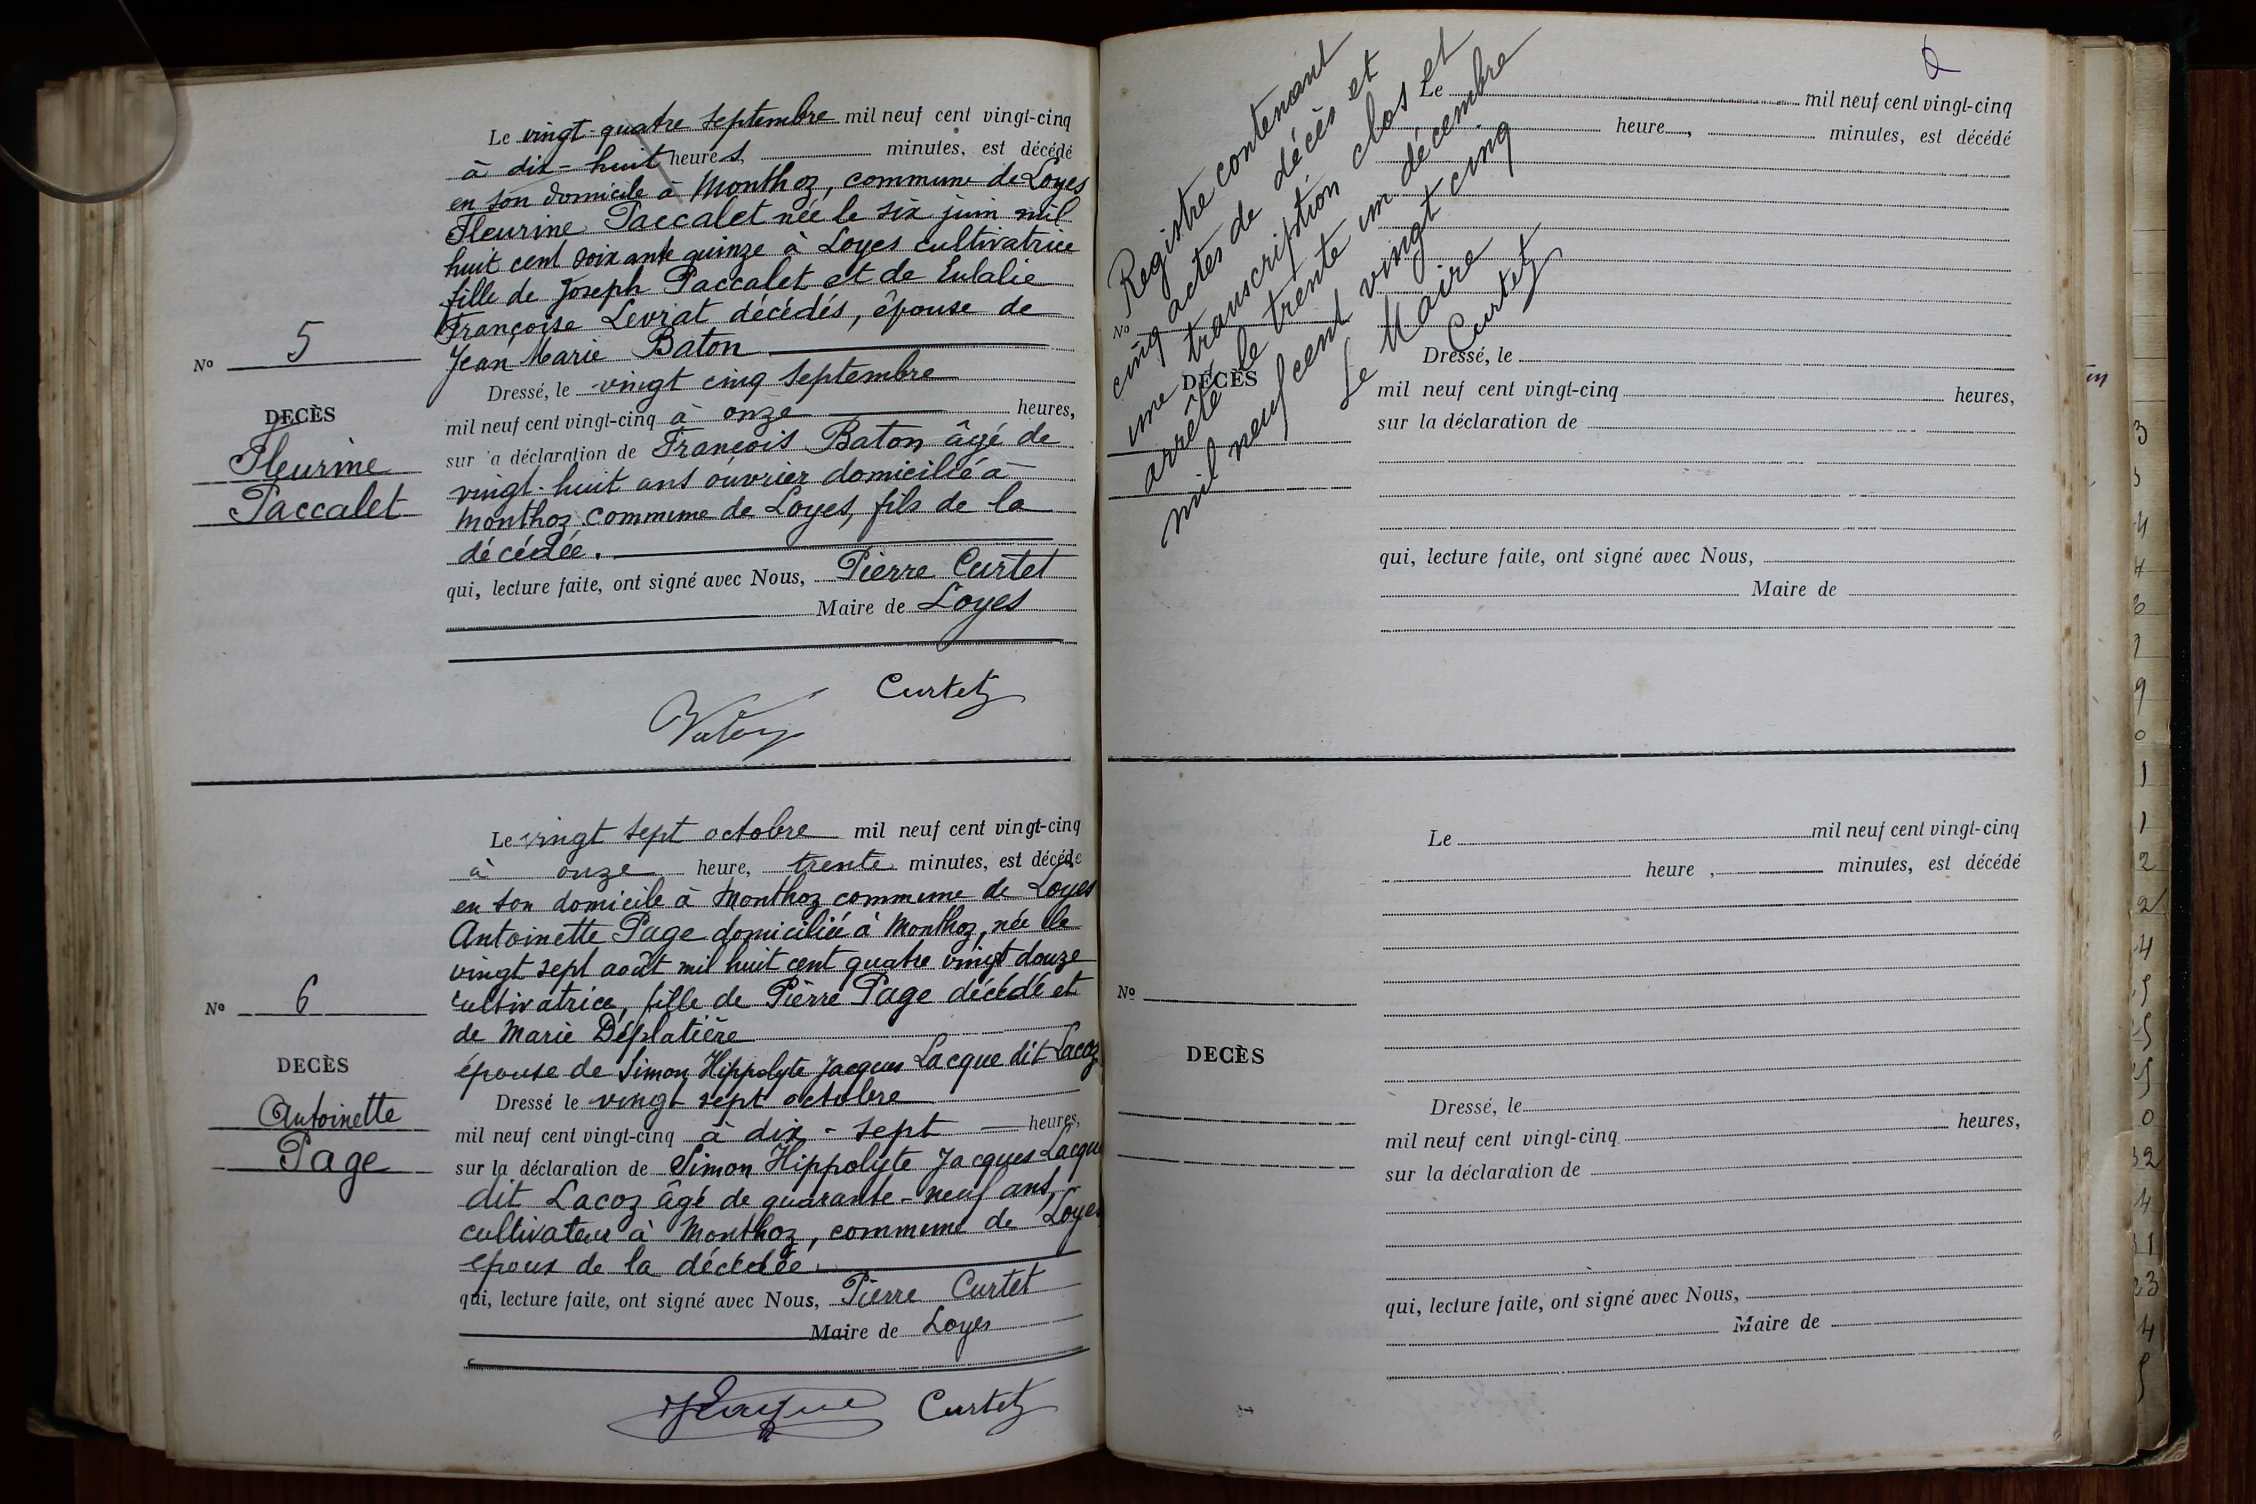 Le vingt-quatre septembre mil neuf cent vingt-cinq
à dix-huit heures, minutes, est décédé
en son domicile à Monthoz, commune de Loyes
Fleurine Paccalet née le six juin mil
huit cent soixante quinze à Loyes cultivatrice
fille de Joseph Paccalet et de Eulalie
Françoise Levrat décédés, épouse de
Jean Marie Baton
No 5
DECÈS
Fleurine
Paccalet
Dressé, le vingt cinq septembre
mil neuf cent vingt-cinq à onze heures,
sur a déclaration de François Baton âgé de
vingt-huit ans ouvrier domicilié à
Monthoz commune de Loyes, fils de la
décédée.
qui, lecture faite, ont signé avec Nous, Pierre Curtet
Maire de Loyes
Curtet
Le vingt sept octobre mil neuf cent vingt-cinq
à onze heure, trente minutes, est décédée
en son domicile à Monthoz commune de Loyes
Antoinette Page domiciliée à Monthoz, née le
vingt sept août mil huit cent quatre vingt douze
cultivatrice, fille de Pierre Page décédé et
de Marie Déplatière
épouse de Simon Hippolyte Jacques Lacque dit Lacoz
No 6
DECÈS
Antoinette
Page
Dressé le vingt sept octobre
mil neuf cent vingt-cinq à dix-sept heures,
sur la déclaration de Simon Hippolyte Jacques Lacque
dit Lacoz âgé de quarante-neuf ans,
cultivateur à Monthoz, commune de Loyes
époux de la décédée.
qui, lecture faite, ont signé avec Nous, Pierre Curtet
Maire de Loyes
Curtet
Registre contenant
cinq actes de décès et
une transcription clos et
arrêté le trente un décembre
mil neuf cent vingt cinq
Le Maire
Curtet
Le mil neuf cent vingt-cinq
heure, minutes, est décédé
No
DECÈS
Dressé, le
mil neuf cent vingt-cinq heures,
sur la déclaration de
qui, lecture faite, ont signé avec Nous,
Maire de
Le mil neuf cent vingt-cinq
heure, minutes, est décédé
No
DECÈS
Dressé, le
mil neuf cent vingt-cinq heures,
sur la déclaration de
qui, lecture faite, ont signé avec Nous,
Maire de